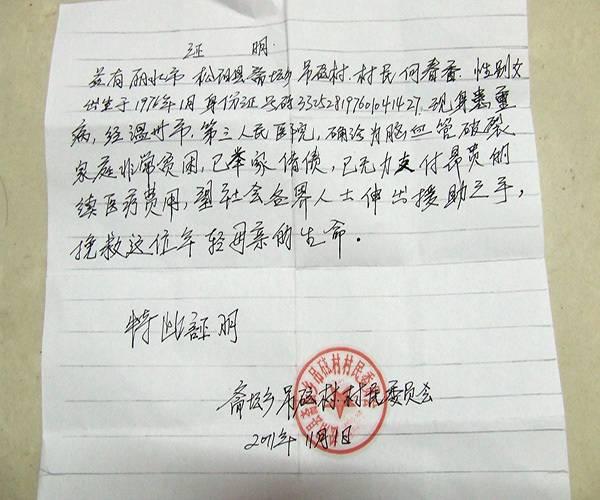 证 明
兹有丽水市 松阳县斋坛乡吊砝村.村民何春香.性别女
出生于1976年1月身份证号码332528197601041427.现身患重
病,经温州市.第三人民医院,确诊为脑血管破裂
家庭非常贫困,已举家借债,已无力支付昂贵的
续医疗费用,望社会各界人士伸出援助之手,
挽救这位年轻母亲的生命。
特此証明
斋坛乡吊砝村.村民委员会
2011年11月1日
吊砝村村民委员会